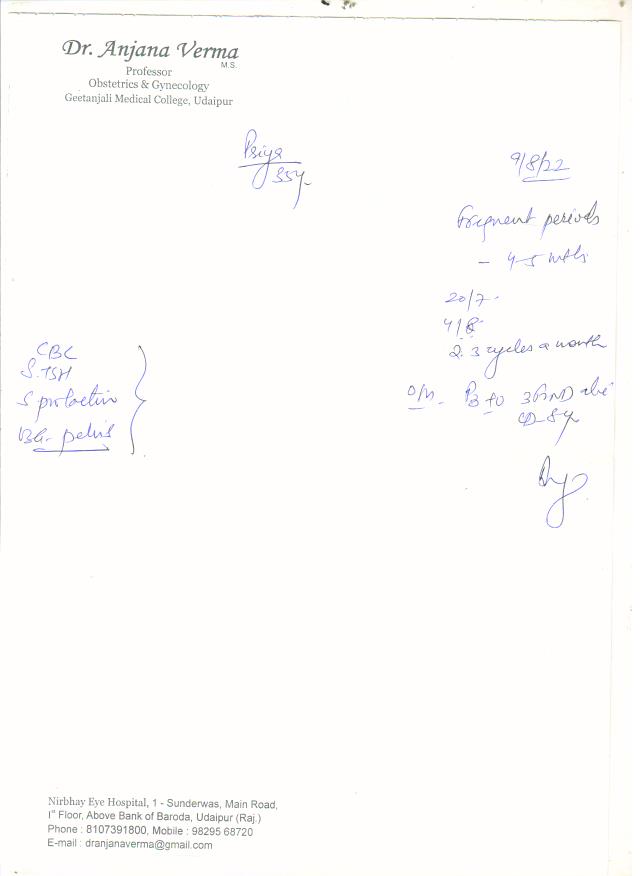 Dr. Anjana Verma
M.S.
Professor
Obstetrics & Gynecology
Geetanjali Medical College, Udaipur
Priya
35y
9/8/22
frequent periods
- 4-5 mths
20/7
4/8
2-3 cycles a month
CBC
S.TSH
S prolactin
pelvis
O/H
CD 8y
Nirbhay Eye Hospital, 1 - Sunderwas, Main Road,
Ist Floor, Above Bank of Baroda, Udaipur (Raj.)
Phone : 8107391800, Mobile : 98295 68720
E-mail : dranjanaverma@gmail.com